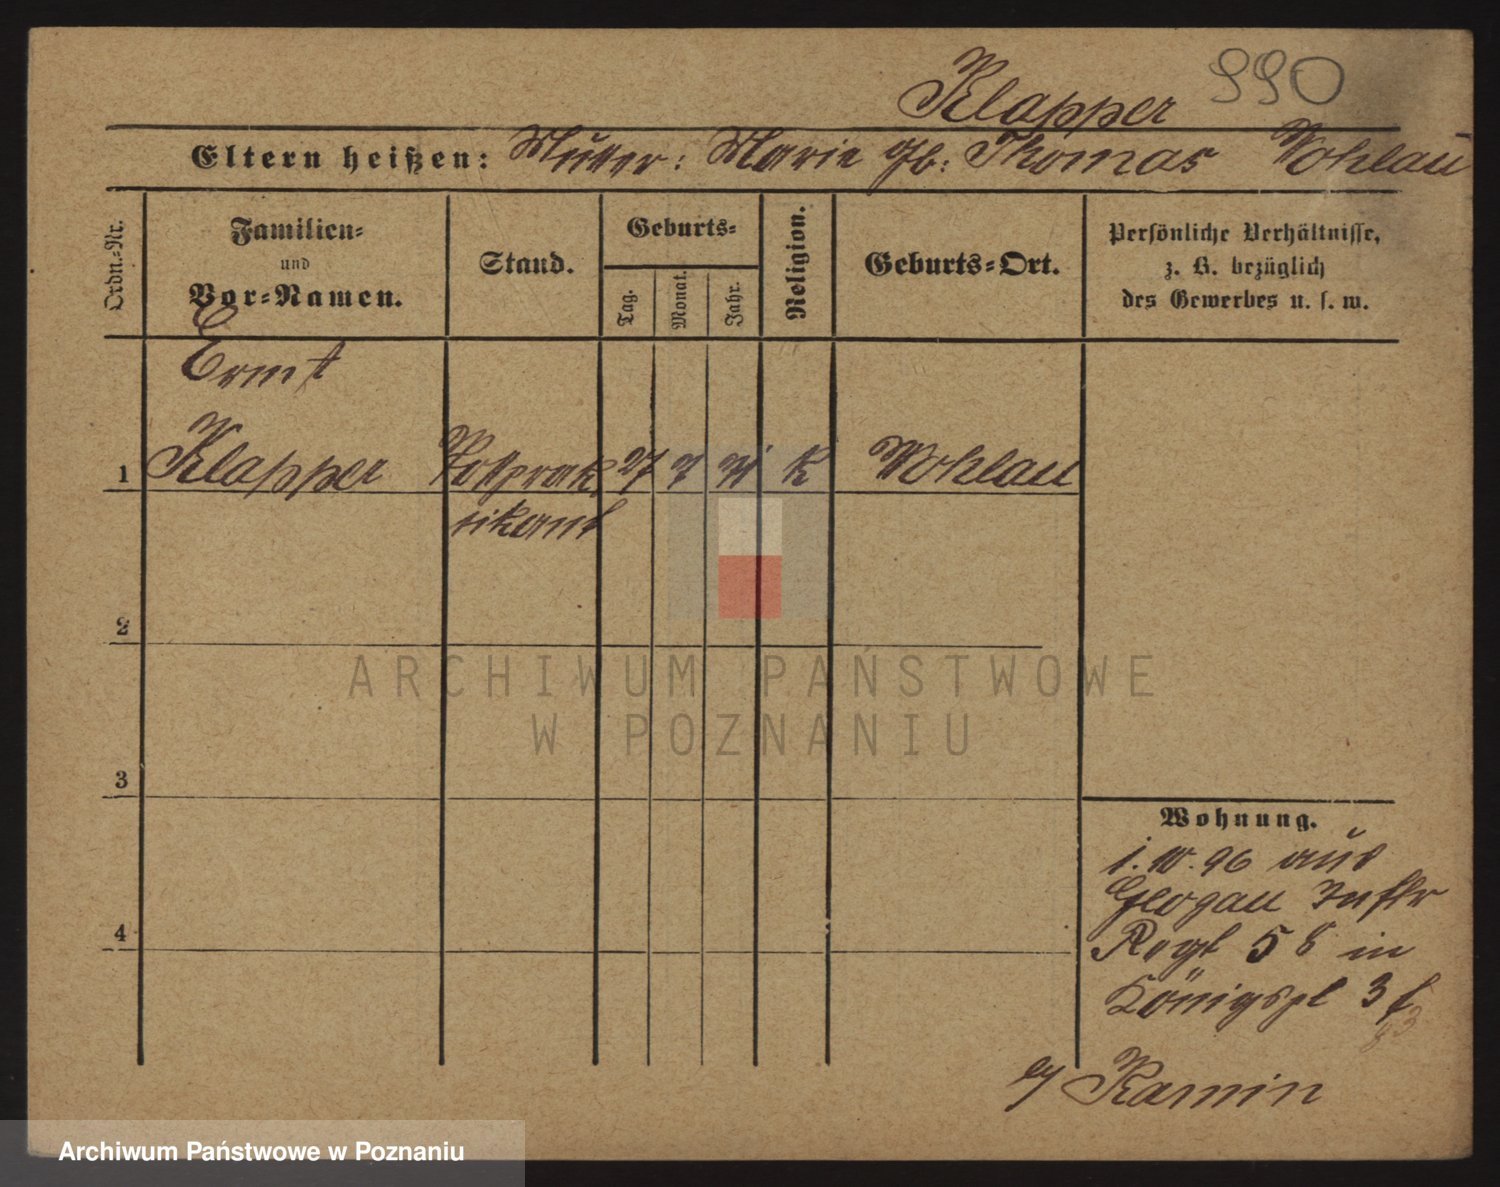 Klapper 990
Eltern heißen: Mutter: Marie gb: Thomas Wohlau
Ordn.-Nr.
Familien-
und
Vor-Namen.
Stand.
Geburts-
Tag.
Monat.
Jahr.
Religion.
Geburts-Ort.
Persönliche Verhältnisse,
z. B. bezüglich
des Gewerbes u. s. w.
Ernst
1 Klapper Postprak 27 7 K Wohlau
tikant
2
3
4
ARCHIWUM PAŃSTWOWE
W POZNANIU
Wohnung.
1. 10. 96 aus
Glogau Inftr
Regt 58 in
Königspl 3
b/ Kamin
Archiwum Państwowe w Poznaniu